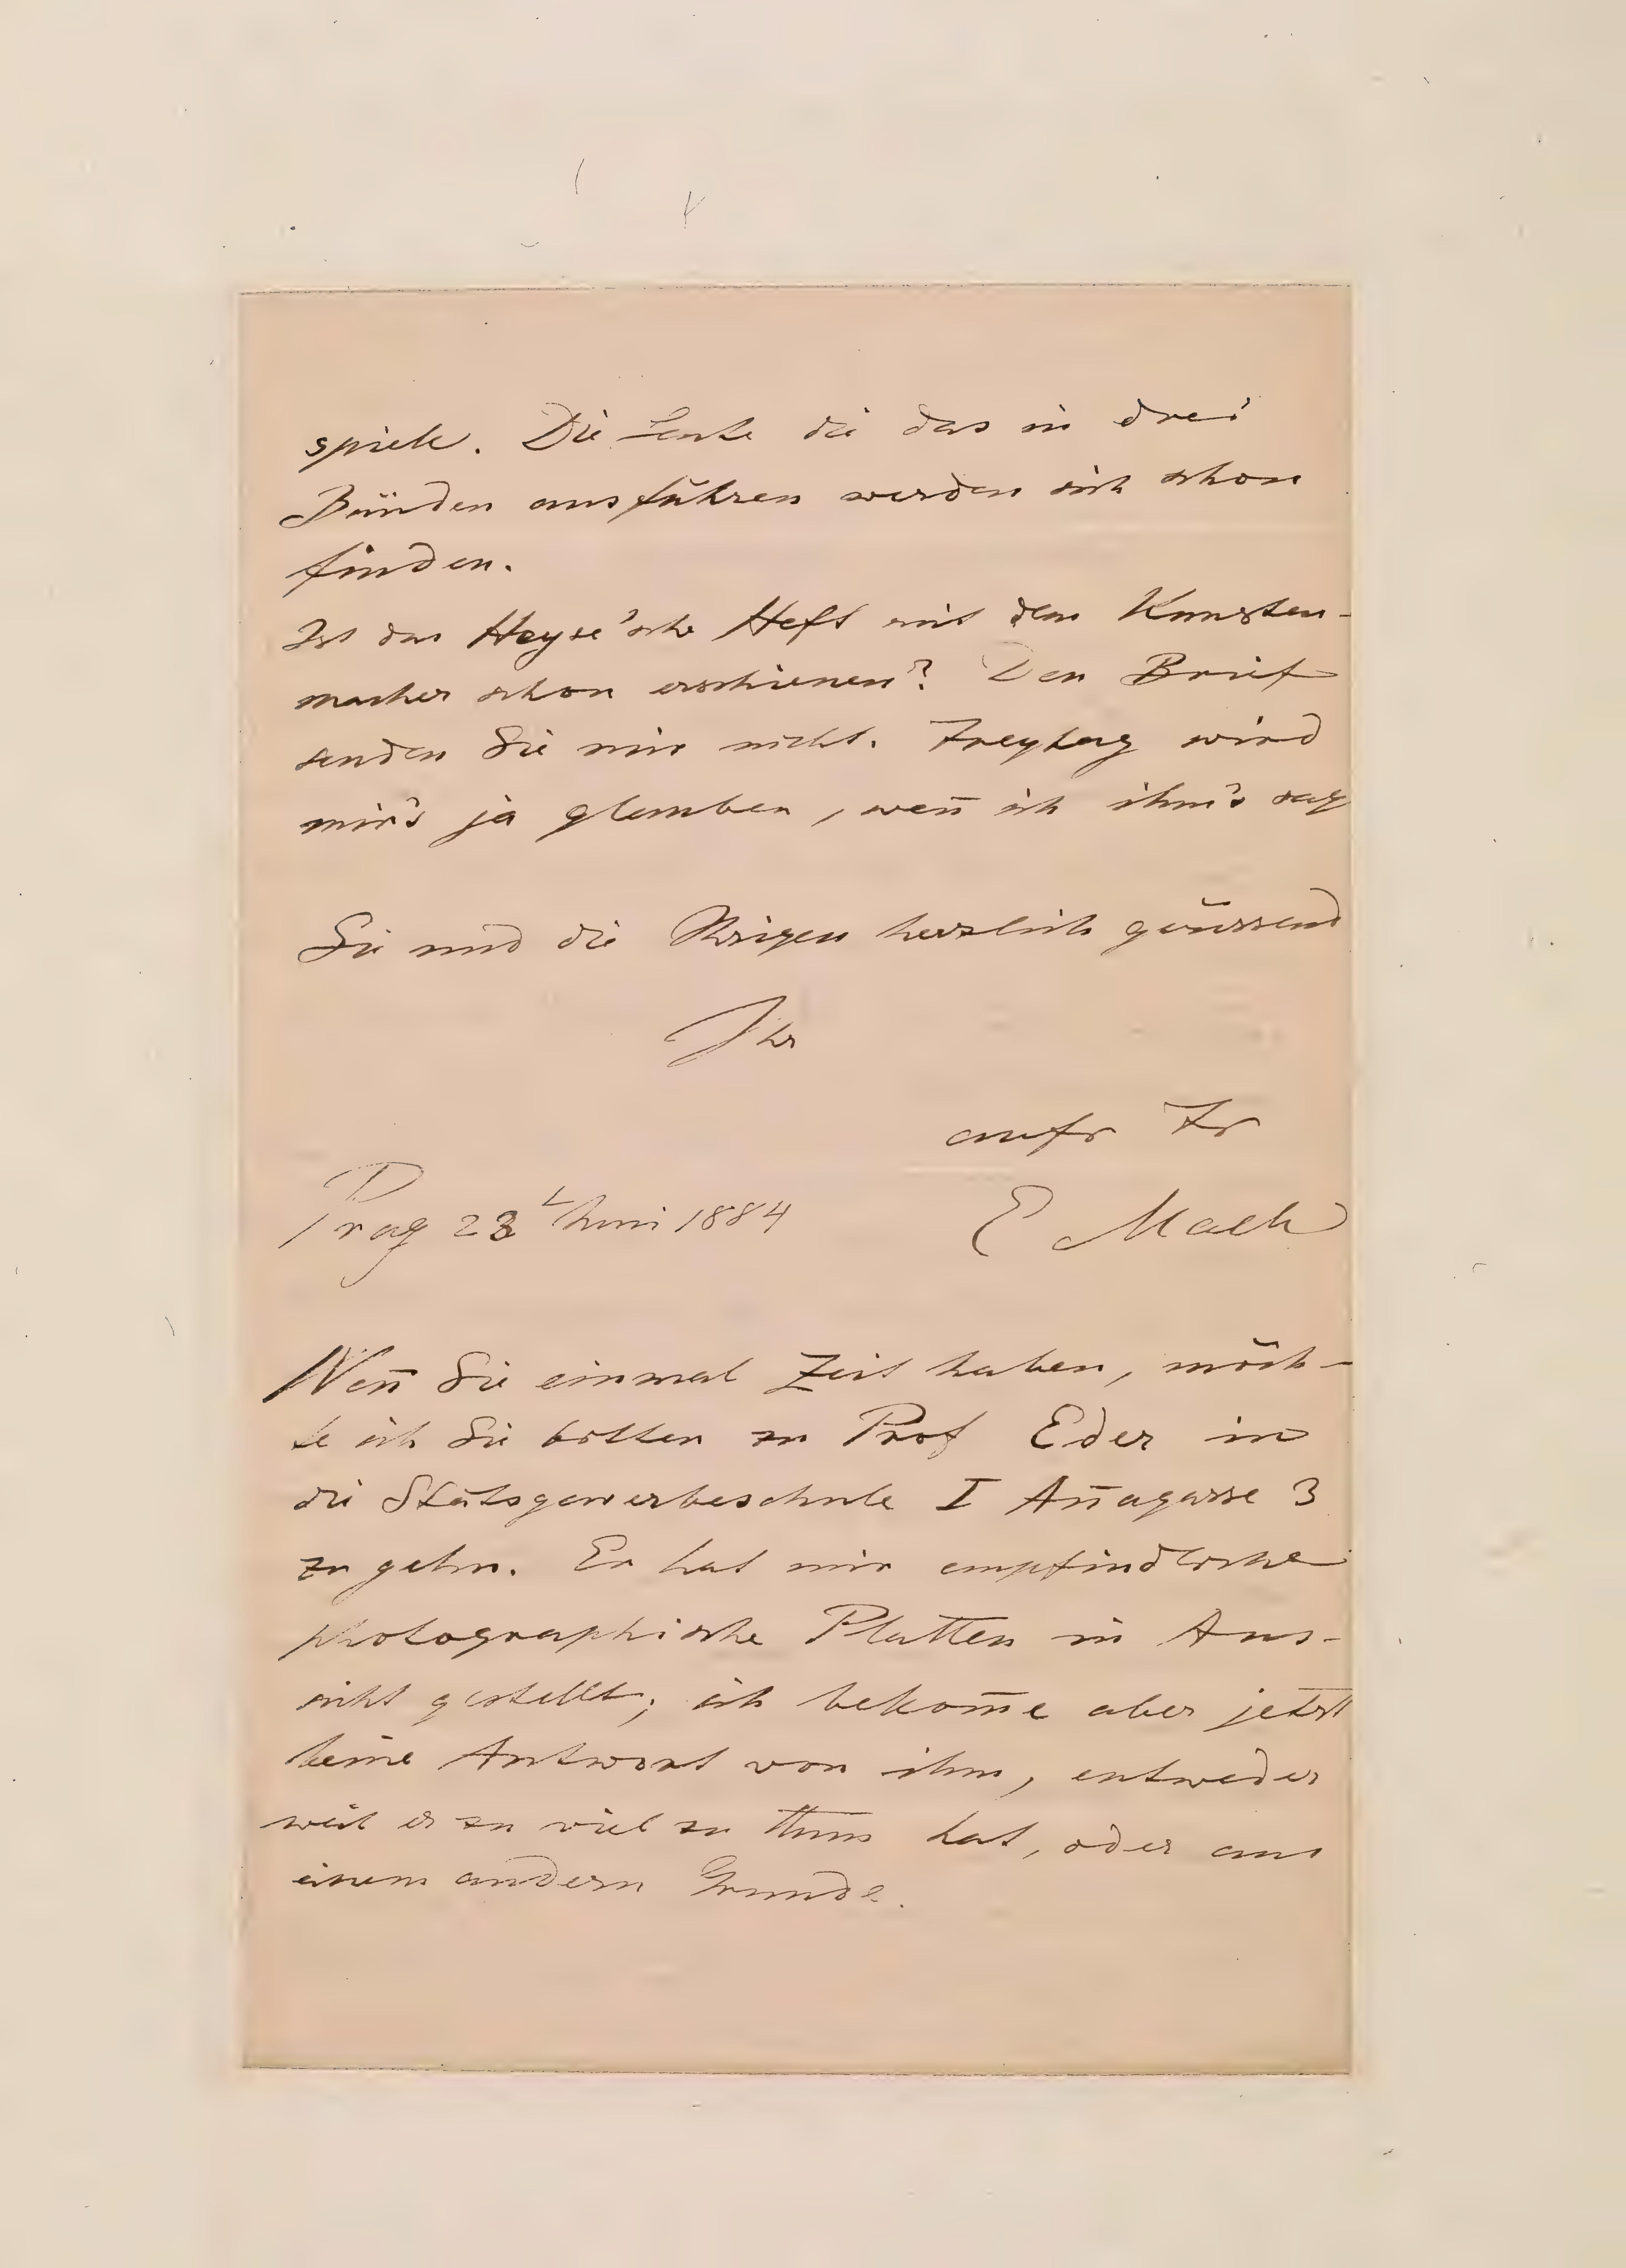 spiele. Die Leute die das in drei
Bänden ausführen werden sich schon
finden.
Ist das Heyse'sche Heft mit dem
macher schon erschienen? Den Brief
senden Sie mir nicht. Freytag wird
mir's ja glauben, wen̄ ich ihm's sag
Sie und die Ihrigen herzlich grüssend
Ihr
aufr Fr
Prag 23 Juni 1884
E Mach
Wen̄ Sie einmal Zeit haben, möch-
te ich Sie bitten zu Prof Eder in
die Statsgewerbeschule I An̄agasse 3
zu gehn. Er hat mir empfindliche
photographische Platten in Aus-
sicht gestellt; ich bekom̄e aber jetzt
keine Antwort von ihm, entweder
weil er zu viel zu thun hat, oder aus
einem andern Grunde.